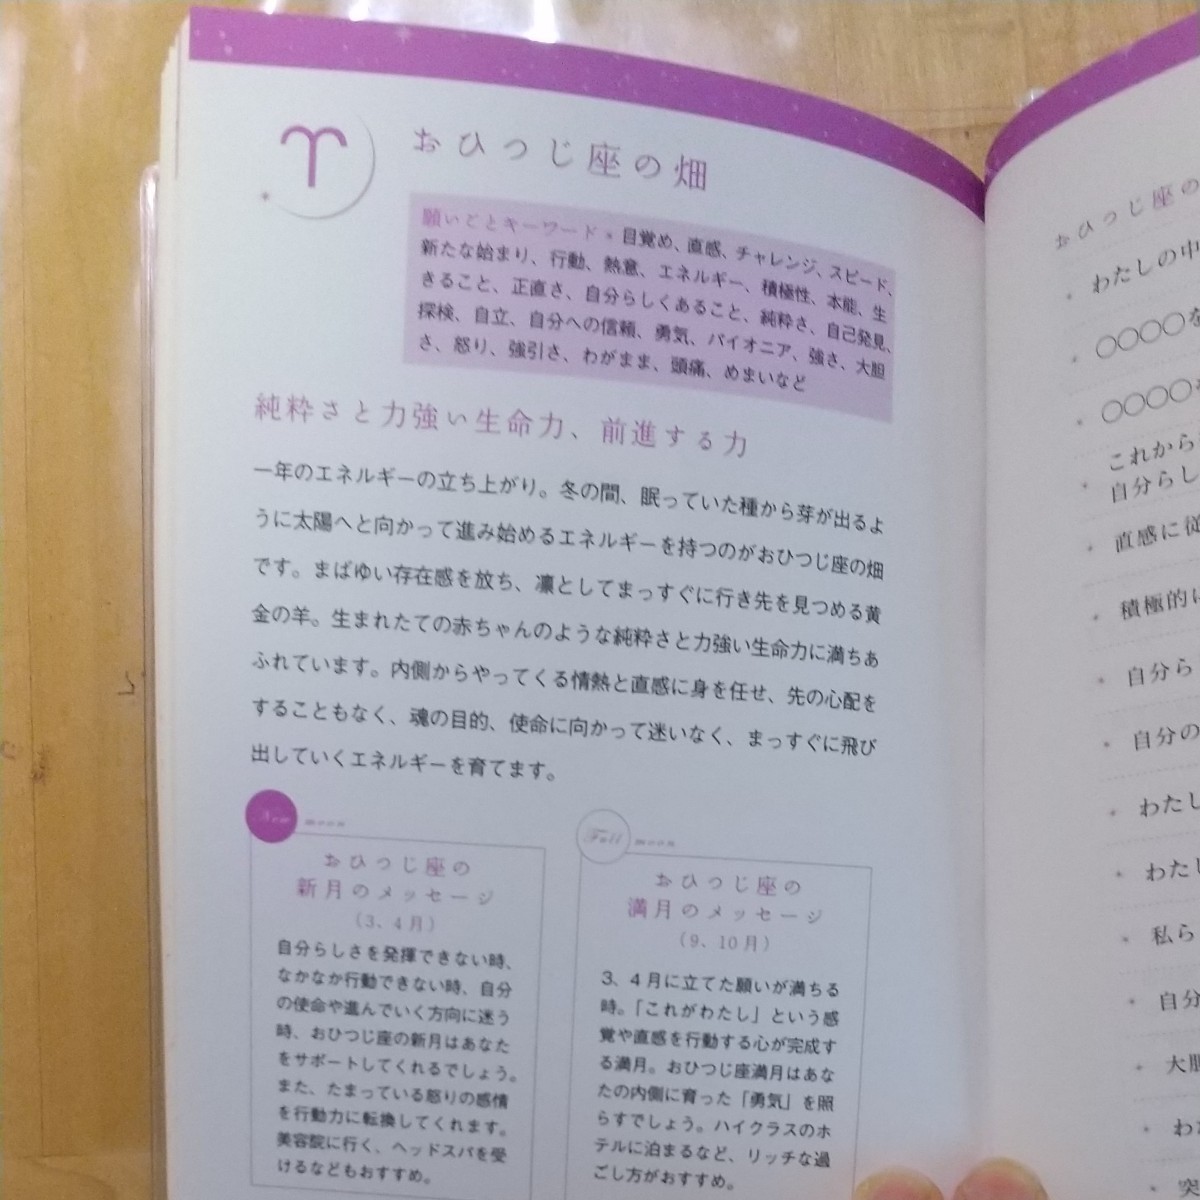 おひつじ座の畑
願いごとキーワード * 目覚め、直感、チャレンジ、スピード、
新たな始まり、行動、熱意、エネルギー、積極性、本能、生
きること、正直さ、自分らしくあること、純粋さ、自己発見、
探検、自立、自分への信頼、勇気、パイオニア、強さ、大胆
さ、怒り、強引さ、わがまま、頭痛、めまいなど
純粋さと力強い生命力、前進する力
一年のエネルギーの立ち上がり。冬の間、眠っていた種から芽が出るよ
うに太陽へと向かって進み始めるエネルギーを持つのがおひつじ座の畑
です。まばゆい存在感を放ち、凛としてまっすぐに行き先を見つめる黄
金の羊。生まれたての赤ちゃんのような純粋さと力強い生命力に満ちあ
ふれています。内側からやってくる情熱と直感に身を任せ、先の心配を
することもなく、魂の目的、使命に向かって迷いなく、まっすぐに飛び
出していくエネルギーを育てます。
New moon
おひつじ座の
新月のメッセージ
（3、4月）
自分らしさを発揮できない時、
なかなか行動できない時、自分
の使命や進んでいく方向に迷う
時、おひつじ座の新月はあなた
をサポートしてくれるでしょう。
また、たまっている怒りの感情
を行動力に転換してくれます。
美容院に行く、ヘッドスパを受
けるなどもおすすめ。
Full moon
おひつじ座の
満月のメッセージ
（9、10月）
3、4月に立てた願いが満ちる
時。「これがわたし」という感
覚や直感を行動する心が完成す
る満月。おひつじ座満月はあな
たの内側に育った「勇気」を照
らすでしょう。ハイクラスのホ
テルに泊まるなど、リッチな過
ごし方がおすすめ。
おひつじ座の
わたしの中
○○○○を
○○○○
これから
自分らし
直感に従
積極的に
自分ら
自分の
わたし
わたし
私ら
自分
大胆
わ
突